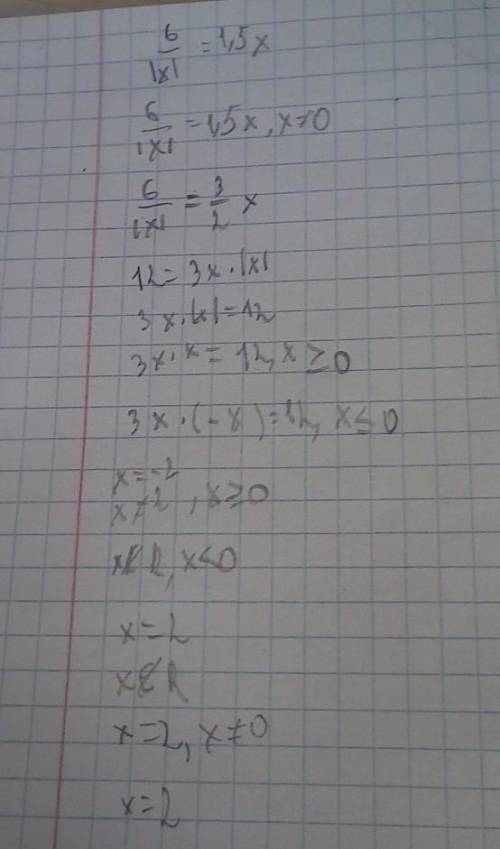 6/|x| = 1,5x
6/|x| = 1,5x, x≠0
6/|x| = 3/2 x
12 = 3x·|x|
3x·|x| = 12
3x·x = 12, x ≥ 0
3x·(-x) = 12, x ≤ 0
x = -2
x = 2 , x ≥ 0
x∉R, x<0
x = 2
x∉R
x = 2, x ≠ 0
x = 2